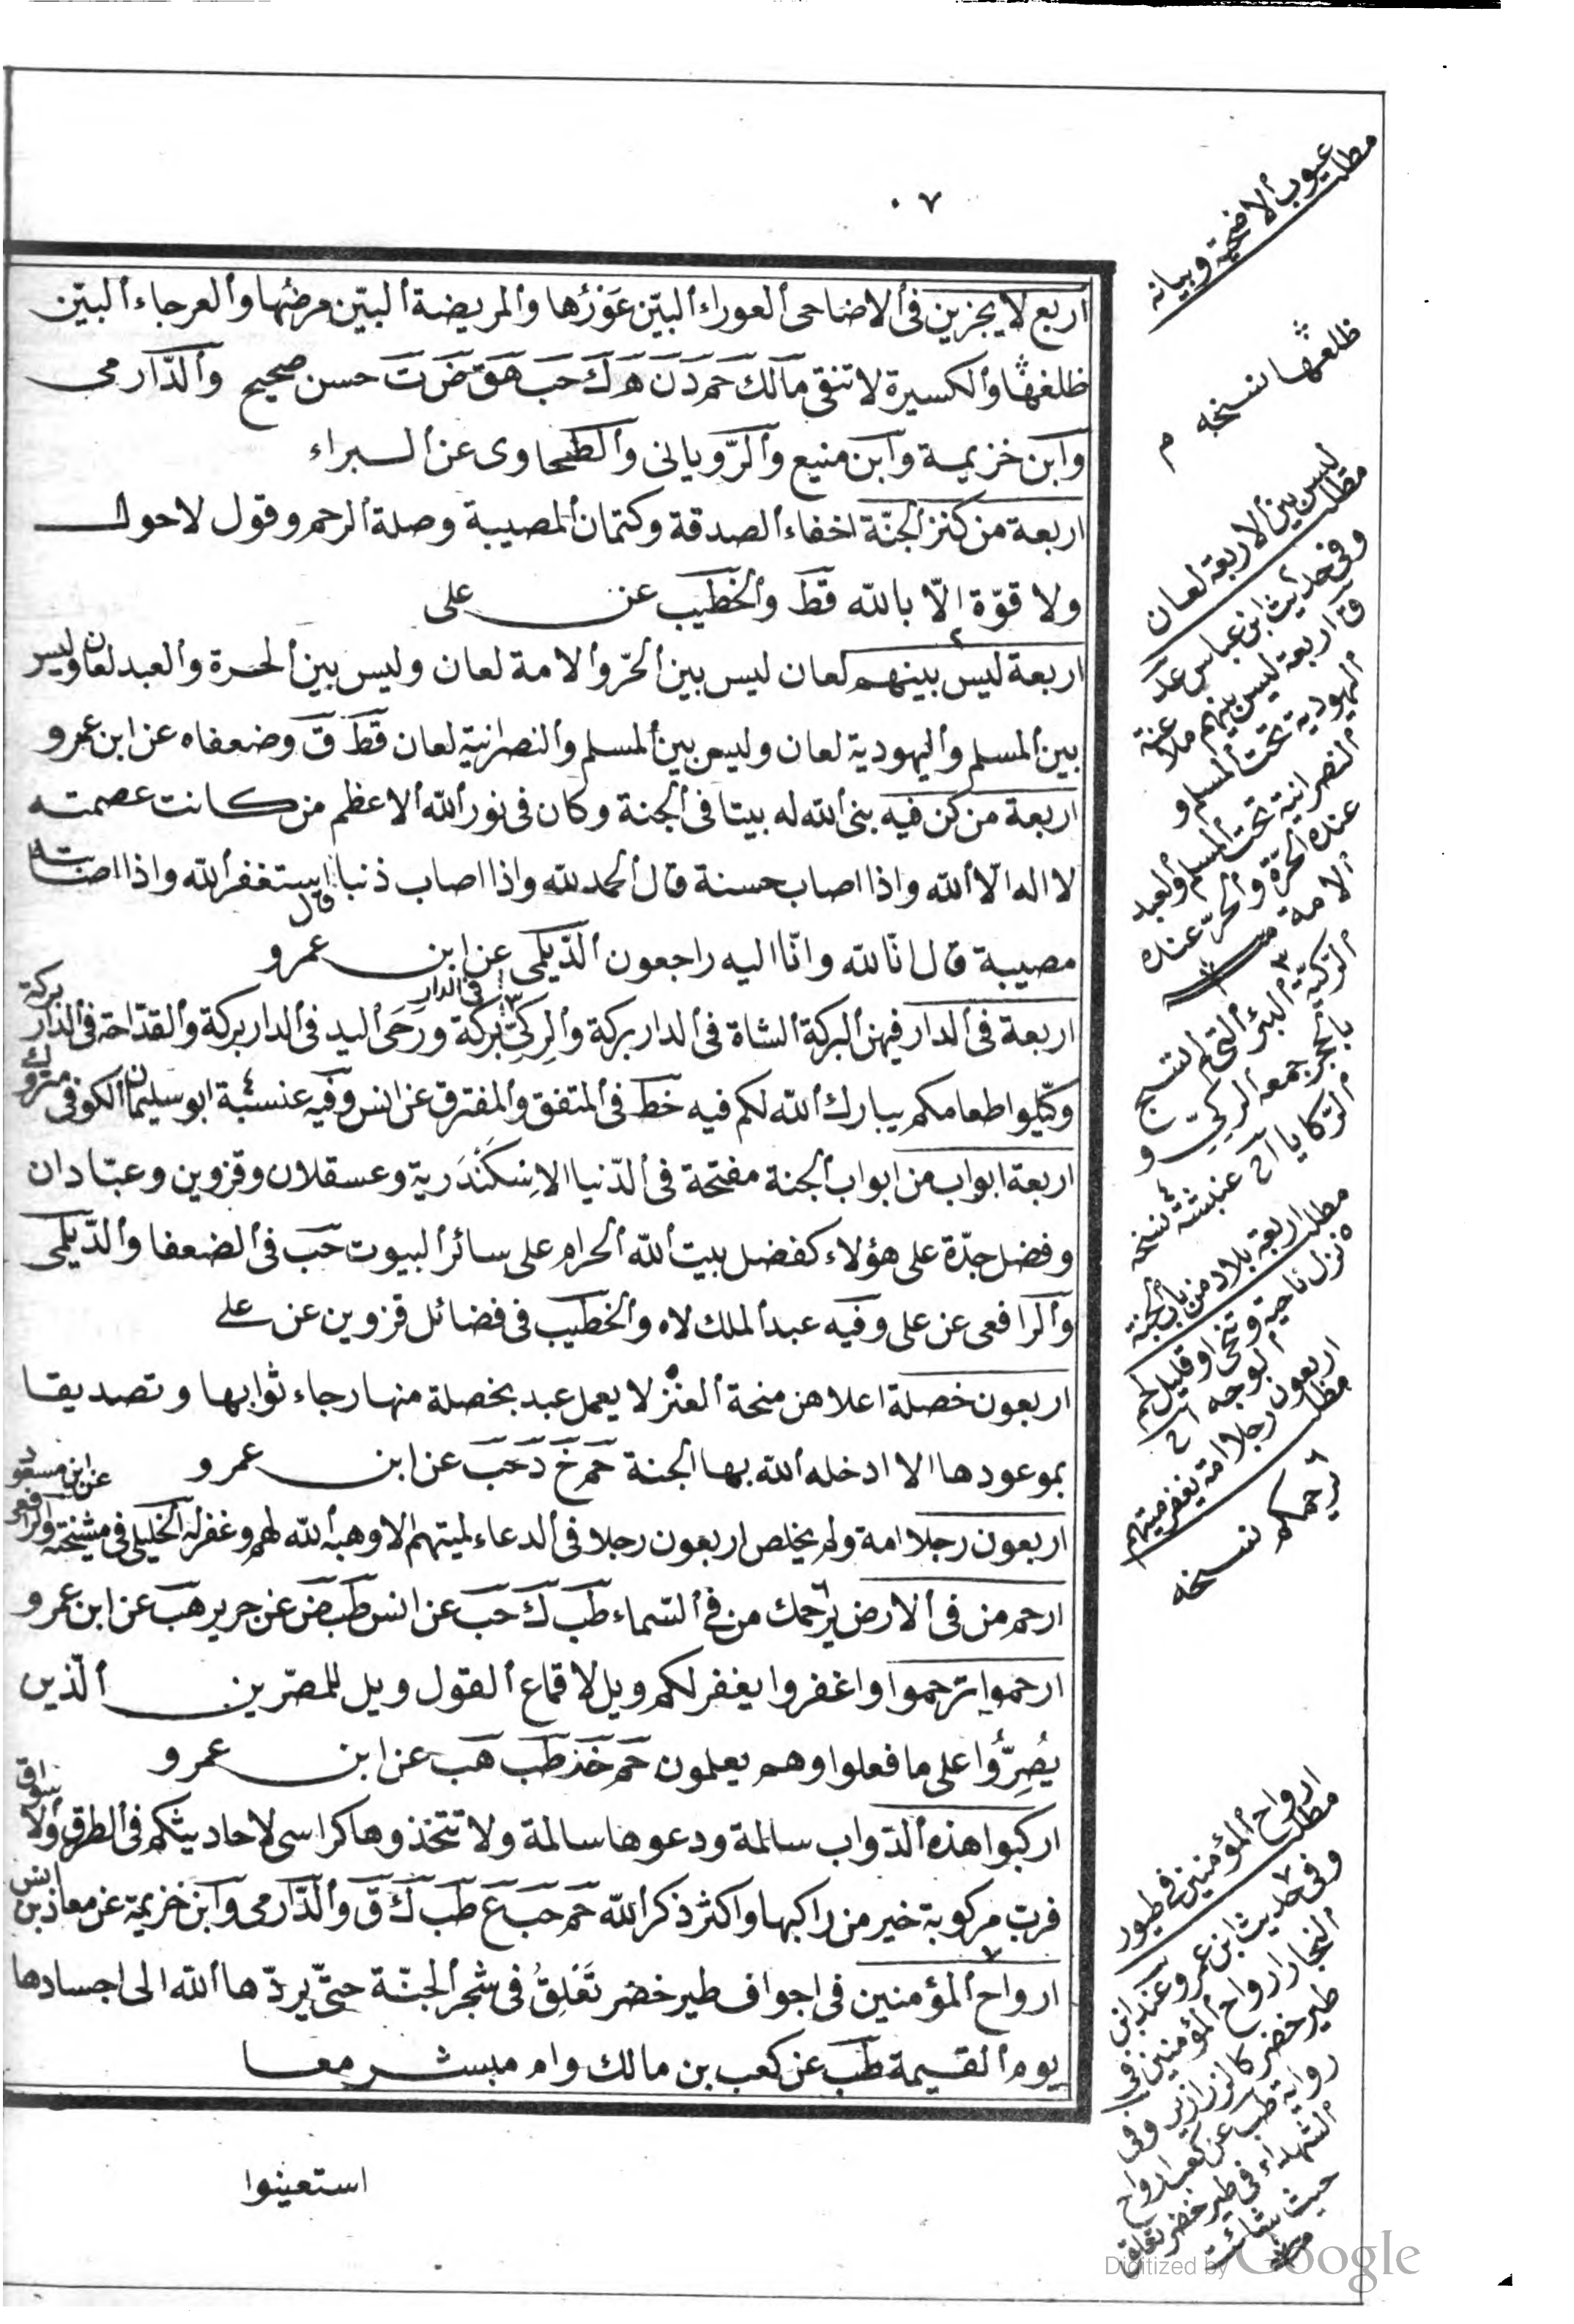 ٧٠
اربع لا يجزين فى الاضاحى العوراء البيّن عَوَرُها والمريضة البيّن مرضُها والعرجاء البيّن
ظلغها والكسيرة لا تنقى مالك حم د ن ه ك حب هق ض ت حسن صحيح والدّارمى
وابن خزيمة وابن منيع والرّويانى والطحاوى عن البراء
اربعة من كنز الجنّة اخفاء الصدقة وكتمان المصيبة وصلة الرحم وقول لا حول
ولا قوّة الّا بالله قط والخطيب عن على
اربعة ليس بينهم لعان ليس بين الحرّ والامة لعان وليس بين الحرة والعبد لعان وليس
بين المسلم واليهودية لعان وليس بين المسلم والنصرانية لعان قط ق وضعفاه عن ابن عمرو
اربعة من كن فيه بنى الله له بيتا فى الجنة وكان فى نور الله الاعظم من كانت عصمته
لا اله الّا الله واذا اصاب حسنة قال الحمد لله واذا اصاب ذنبا قال استغفر الله واذا اصابته
مصيبة قال انّا لله وانّا اليه راجعون الدّيلمى عن ابن عمرو
اربعة فى الدار فيهن البركة الشاة فى الدار بركة والرِكَىّ فى الدار بركة ورَحَى اليد فى الدار بركة والقدّاحة فى الدّار بركة
وكّيلوا طعامكم يبارك الله لكم فيه خط فى المتفق والمفترق عن انس وفيه عنبسة ابو سليمان الكوفى متروك
اربعة ابواب من ابواب الجنة مفتحة فى الدّنيا الاِسكَندَرية وعسقلان وقزوين وعبّادان
وفضل جدّة على هؤلاء كفضل بيت الله الحرام على سائر البيوت حب فى الضعفا والدّيلمى
والرافعى عن على وفيه عبد الملك لاه والخطيب فى فضائل قزوين عن على
اربعون خصلة اعلاهن منحة العنز لا يعمل عبد بخصلة منها رجاء ثوابها وتصديقا
بموعودها الا ادخله الله بها الجنة حم خ د حب عن ابن عمرو
اربعون رجلا امة ولم يخلص اربعون رجلا فى الدعاء لميتهم الا وهبه الله لهم وغفر له الخليلى فى مشيخته والرافعى عن ابن مسعود
ارحم من فى الارض يرحمك من فى السّماء طب ك حب عن انس طب ض عن جرير هب عن ابن عمرو
ارحموا ترحموا واغفروا يغفر لكم ويل لاقماع القول ويل للمصرّين الّذين
يُصِرُّوا على ما فعلوا وهم يعلمون حم خد طب هب عن ابن عمرو
اركبوا هذه الدّواب سالمة ودعوها سالمة ولا تتخذوها كراسى لاحاديثكم فى الطرق والاسواق
فرب مركوبة خير من راكبها واكثر ذكر الله حم حب ع طب ك ق والدّارمى وابن خزيمة عن معاذ بن انس
ارواح المؤمنين فى اجواف طير خضر تَعلِقُ فى شجر الجنّة حتّى يردّها الله الى اجسادها
يوم القيمة طب عن كعب بن مالك وام مبشر معا
استعينوا
مطلب
عيوب الاضحية وبيانه
ظلعها نسخه م
مطلب
ليس بين الاربعة لعان
وفى حديث ابن عباس عد
ق اربعة ليس بينهم ملاعنة
اليهودية تحت المسلم و
النصرانية تحت المسلم والعبد
عنده الحرّة والحرّ عنده
الامة
الركيّة البئر التى لم تنسج
بالحجر جمعه الركى و
الركايا
عنبشة نسخه
مطلب
اربعة بلاد من باب الجنة
نزل ناحية وتنحى او قليل لحم
الوجه
مطلب
اربعون رجلا امة يغفر ميتهم
يرحمكم نسخه
مطلب
ارواح المؤمنين فى طيور
وفى حديث ابن عمرو عند ابن
النجار ارواح المؤمنين فى
طير خضر كالزرازير وفى
رواية طب عن كعب ارواح
الشهداء فى طير خضر تعلق
حيث شائت
Digitized by Google